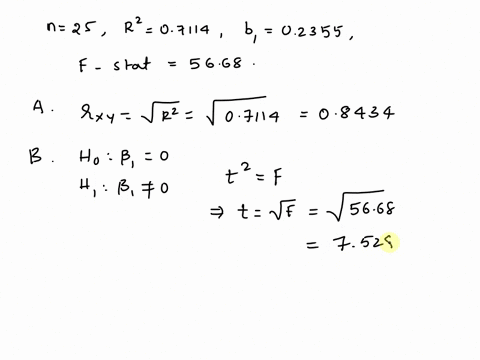 n=25, R²=0.7114, b₁=0.2355,
F-stat = 56.68.
A. r_xy = √R² = √0.7114 = 0.8434
B. H₀: β₁ = 0
H₁: β₁ ≠ 0
t² = F
⇒ t = √F = √56.68
= 7.528